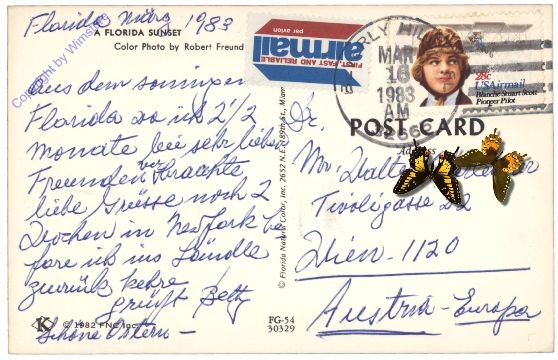 Florida März 1983
A FLORIDA SUNSET
Color Photo by Robert Freund
Copyright by Wimsi
Aus dem sonnigen
Florida wo ich 2 1/2
Monate bei sehr lieben
Freunden verbrachte
liebe Grüsse noch 2
Wochen in New York be
fore ich ins Ländle
zurück kehre
grüsst Betty
Schöne Ostern –
K © 1982 FNC Inc.
© Florida Natural Color, Inc. 2652 N.E. 189th St., Miami
FG-54
30329
par avion
airmail
FIRST, FAST AND RELIABLE
MAR
16
1983
AM
28c
USAirmail
Blanche Stuart Scott
Pioneer Pilot
POST CARD
Address
Dr.
Walter
Tivoligasse 22
Wien - 1120
Austria - Europa